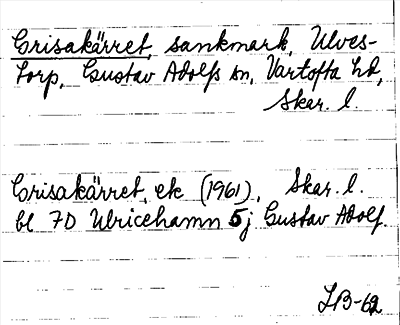 Grisakärret, sankmark, Ulves-
torp, Gustav Adolfs sn, Vartofta hd,
Skar. l.
Grisakärret, ek (1961), Skar. l.
bl 7D Ulricehamn 5j Gustav Adolf.
IB-62